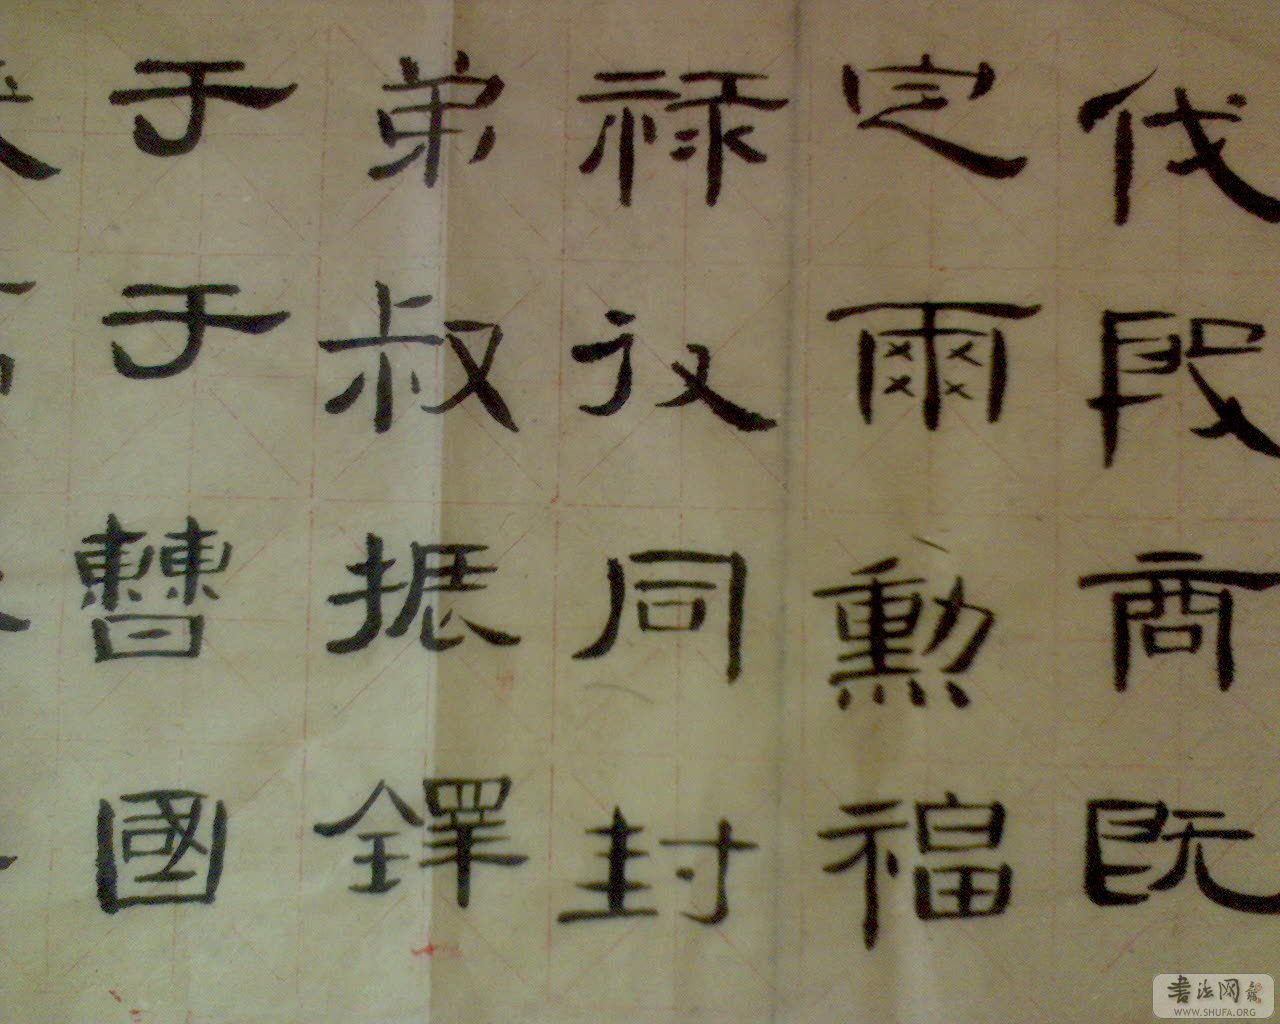 伐殷商既
定爾勳福
祿攸同封
弟叔振鐸
于于曹國
書法网
WWW.SHUFA.ORG